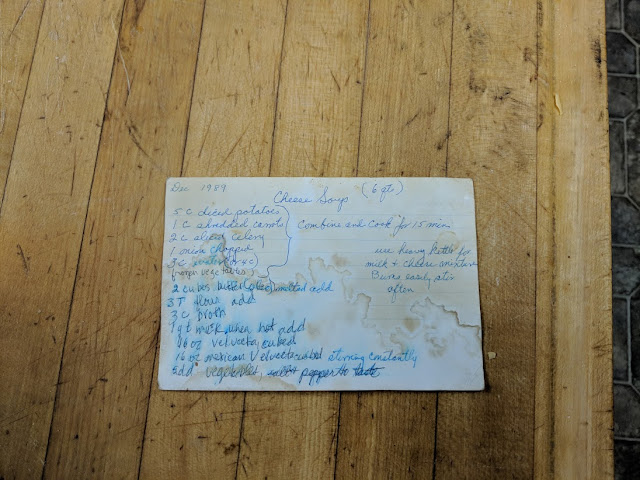 Dec 1989
Cheese Soup (6 qts)
5 C diced potatoes
1 C shredded carrots
2 C sliced celery
1 onion chopped
3 C water (or 4 C)
Combine and cook for 15 min
use heavy kettle for
milk & cheese mixture
Burns easily stir
often
2 cubes butter melted add
3 T flour add
3 C broth
1 qt milk when hot add
16 oz Velveeta, cubed
16 oz mexican Velveeta cubed stirring constantly
add vegetables, salt & pepper to taste